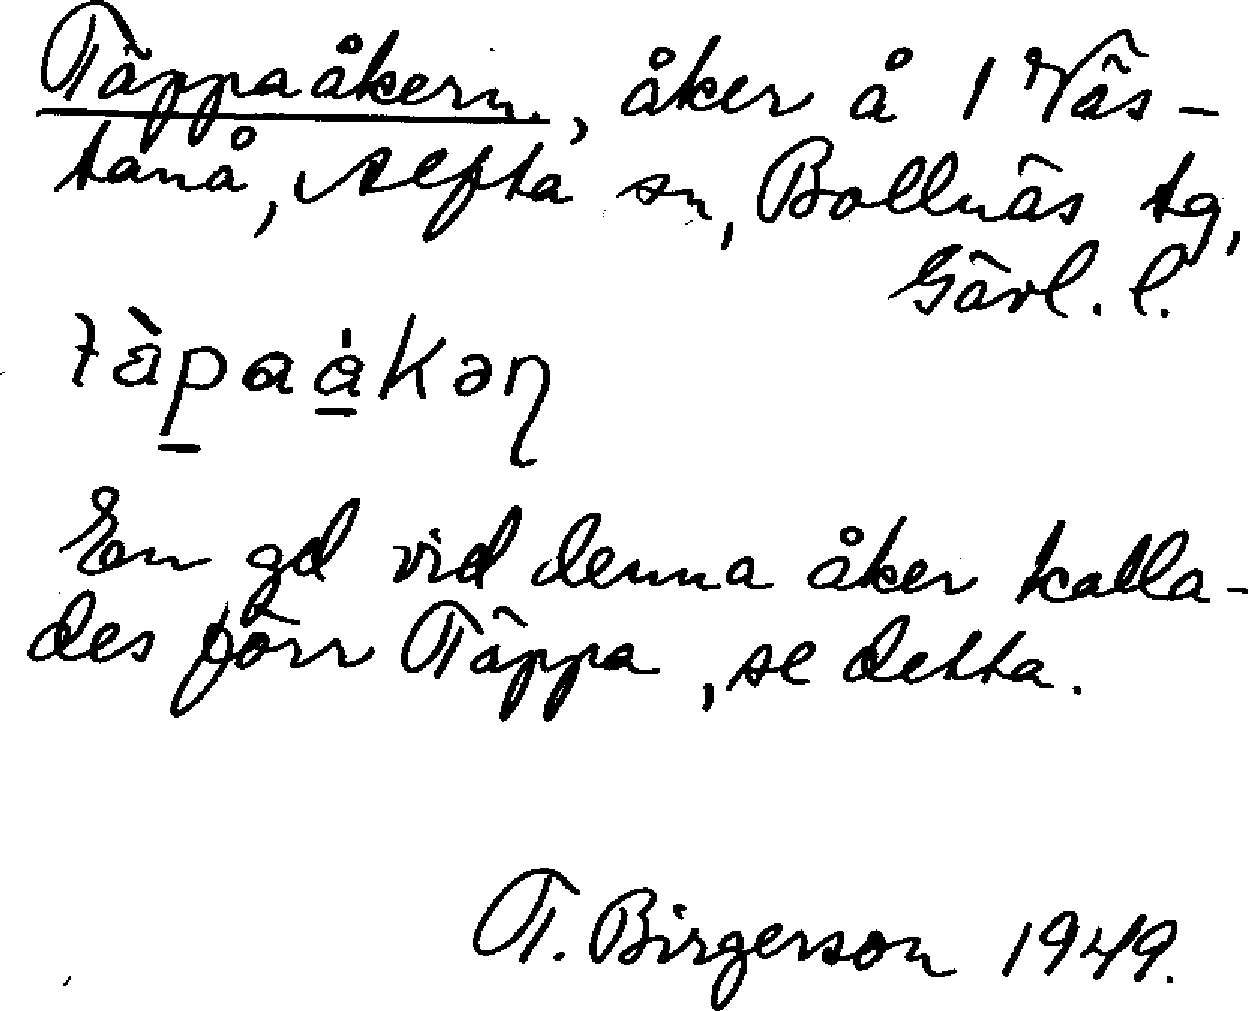 Täppaåkern, åker å 1 Väs-
tanå, Alfta sn, Bollnäs tg,
Gävl. l.
En gd vid denna åker kalla-
des förr Täppa, se detta.
T. Birgerson 1949.